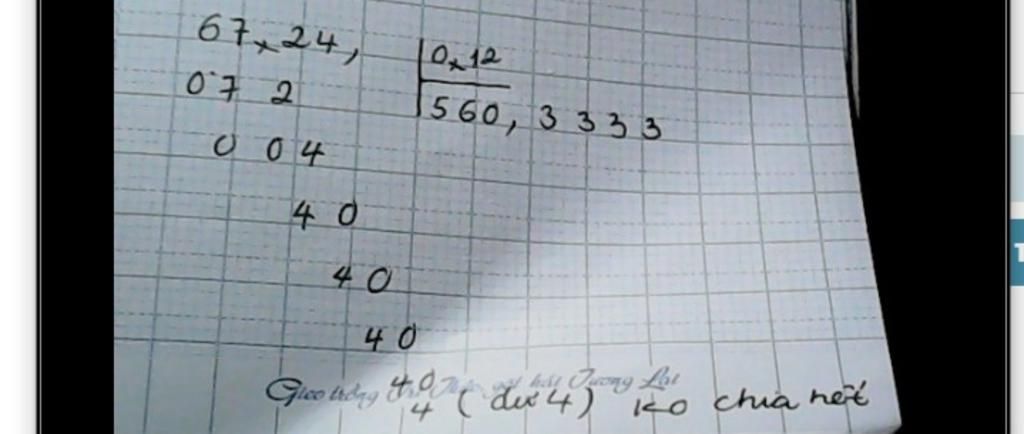 67,24, 0,12
07 2 560, 3333
0 04
40
40
40
40
Gieo trồng Tri Thức, gặt hái Tương Lai
4 ( dư 4) ko chia hết